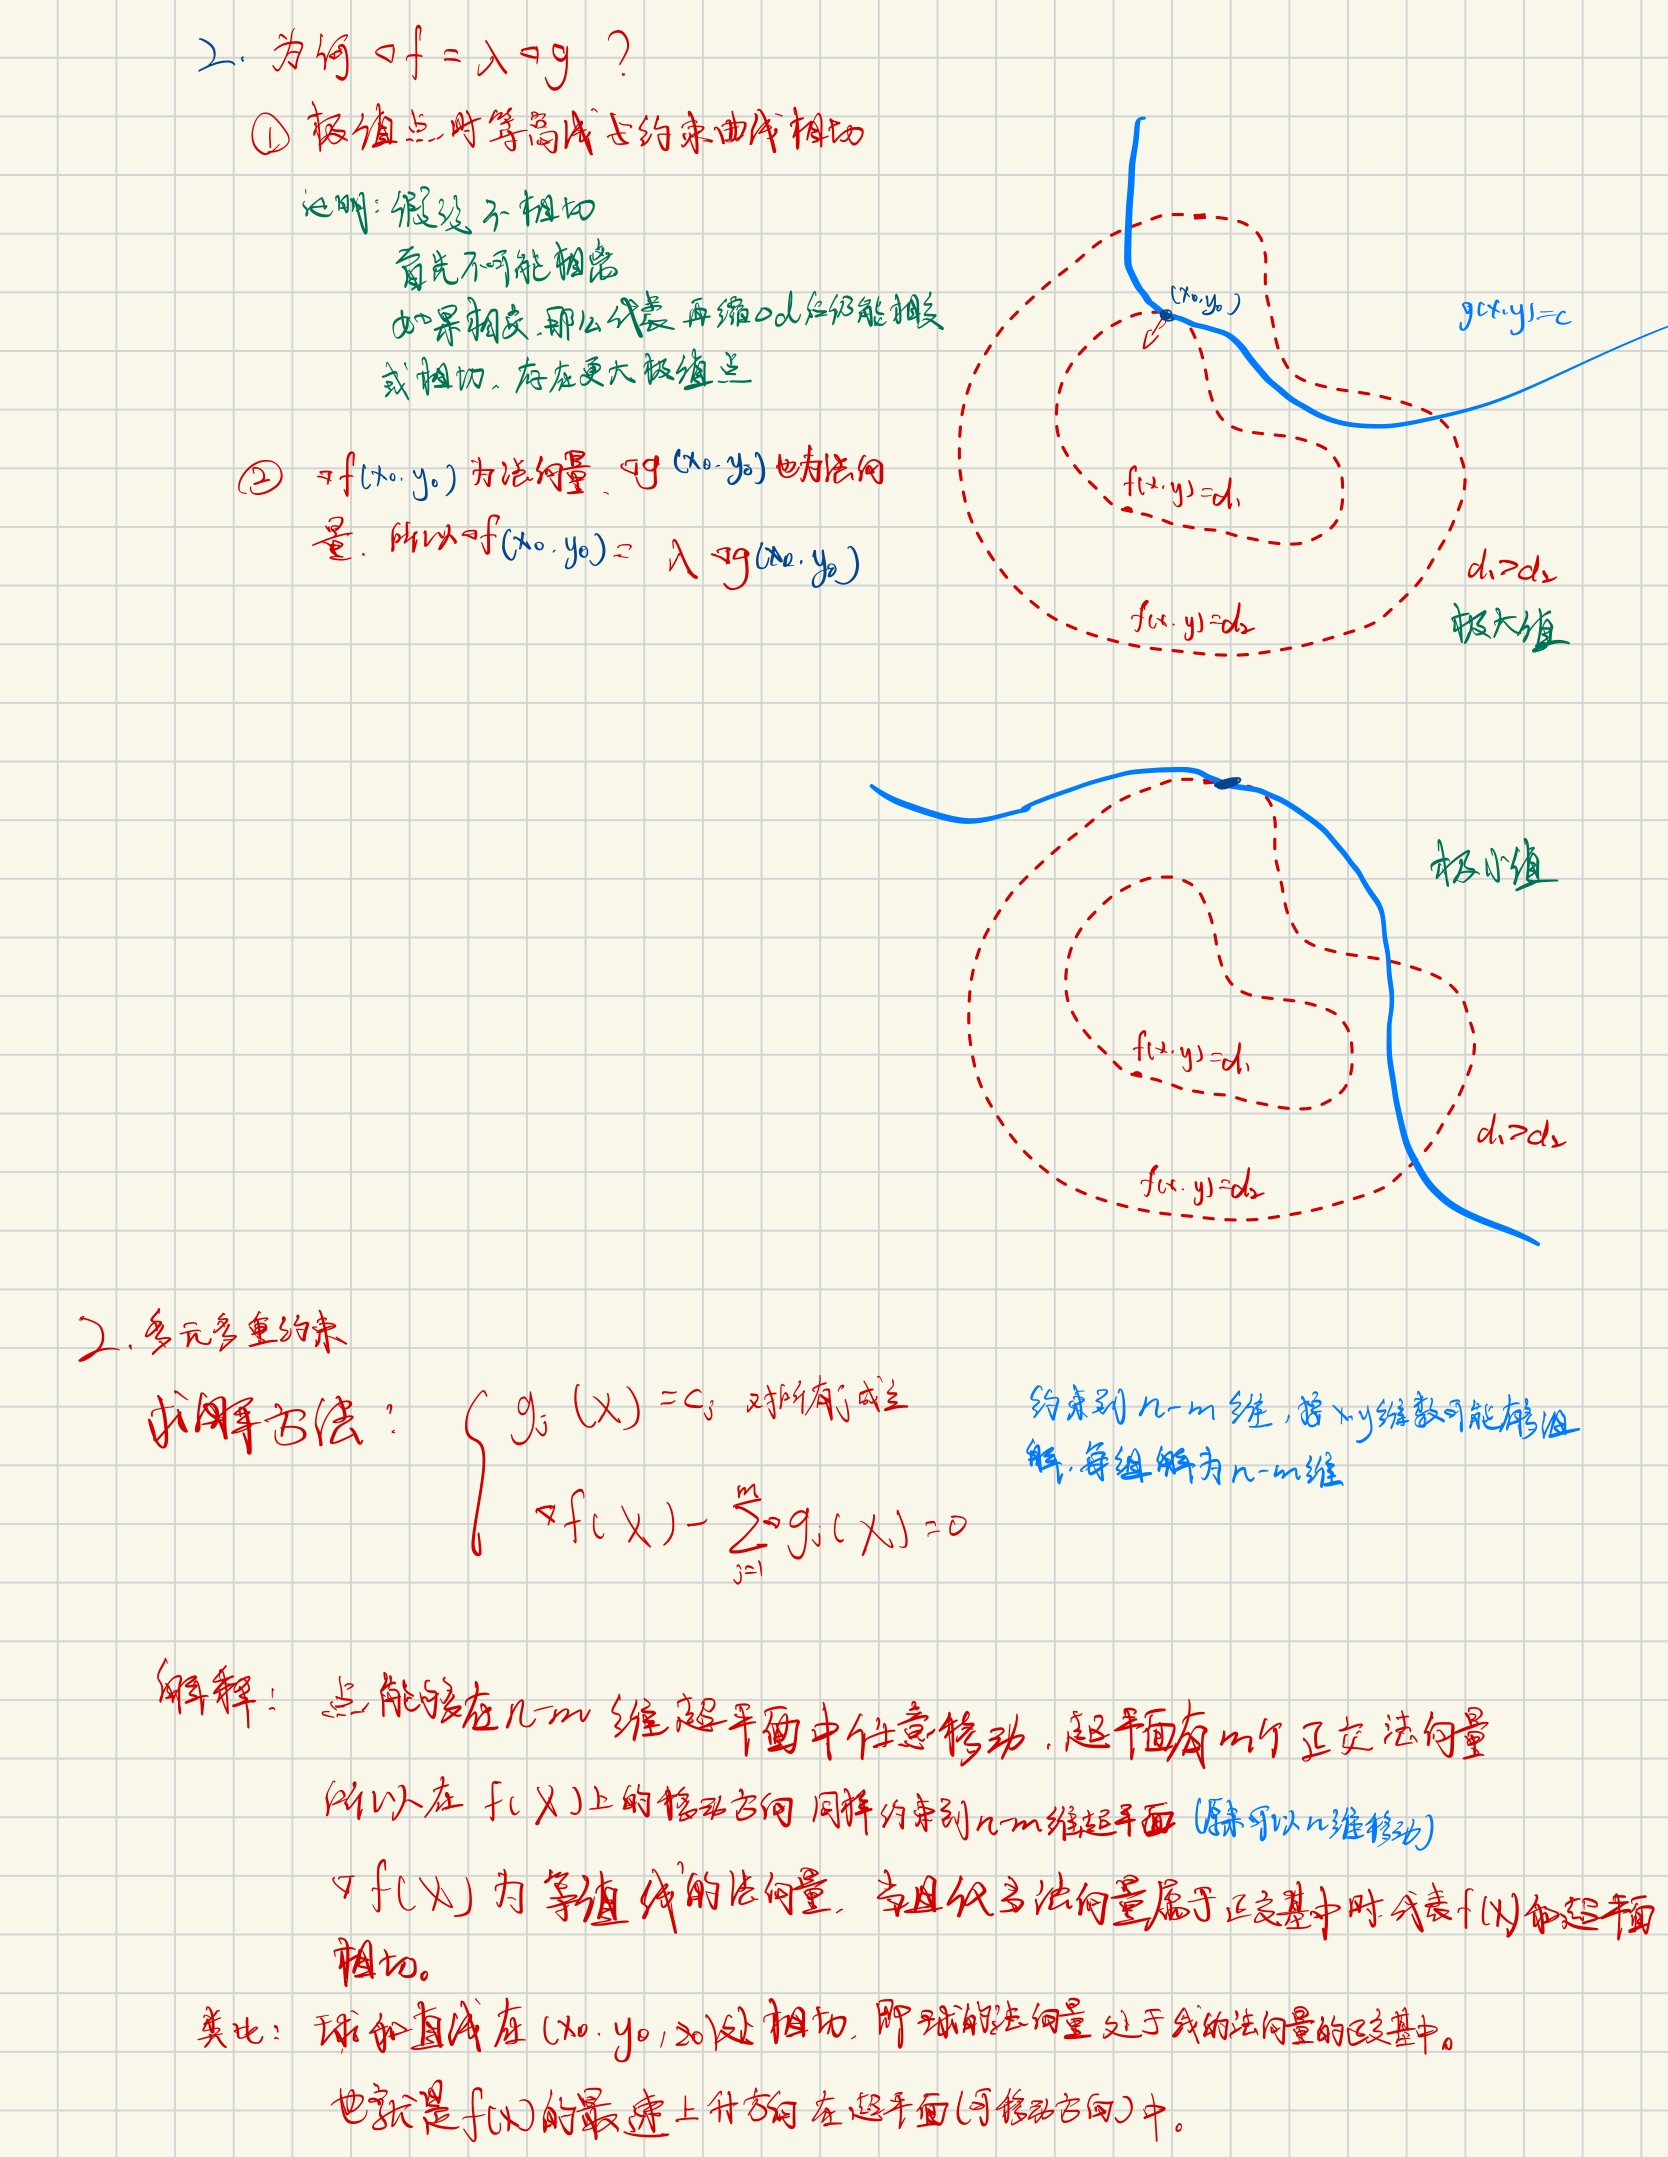 2. 为何 ∇f = λ∇g ?
① 极值点时等高线与约束曲线相切
证明: 假设不相切
首先不可能相离
如果相交、那么代表再缩小d后仍能相交
或相切、存在更大极值点
② ∇f(x₀, y₀) 为法向量、∇g(x₀, y₀) 也为法向
量、所以∇f(x₀, y₀) = λ ∇g(x₀, y₀)
(x₀, y₀)
g(x, y)=c
f(x, y)=d₁
f(x, y)=d₂
d₁>d₂
极大值
极小值
f(x, y)=d₁
d₁>d₂
f(x, y)=d₂
2. 多元多重约束
求解方法: { gⱼ(X) = cⱼ 对所有j成立
∇f(X) - ∑ⱼ₌₁ᵐ ∇gⱼ(X) = 0
约束到 n-m 维, 按x,y维数可能有多组
解、每组解为 n-m维
解释: 点能够在n-m 维超平面中任意移动、超平面有m个正交法向量
所以在 f(X)上的移动方向同样约束到n-m维超平面 (原来可以n维移动)
∇f(X) 为等值线的法向量、当且仅当法向量属于正交基中时代表f(X)和超平面
相切。
类比: 球和直线在(x₀, y₀, z₀)处相切、即球的法向量处于线的法向量的正交基中。
也就是f(X)的最速上升方向在超平面(可移动方向)中。